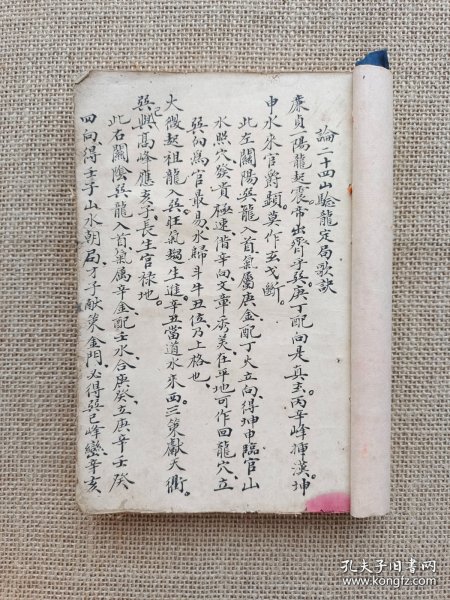 論二十四山騐龍定局歌訣
廉貞一陽龍起震。帝出齊乎巽庚丁配向是真玄。丙辛峰揷漢。坤
申水来官爵顕。莫作玄戈斷。
此左關陽巽龍入首氣屬庚金配丁火立向。得坤申臨官山
水照穴發貴極速。諧辛向文章秀美。在平地可作回龍穴。立
巽向爲官最易。水歸斗牛丑位乃上格也。
大微起祖龍入巽。旺氣趨生進。辛丑當道水来西。三策献天衢。
巽與高峰應亥子。長生官禄地。
此右關陰巽龍入首氣属辛金配壬水合庚癸立庚辛壬癸
四向。得壬子山水朝局才子献策金門。必得巽巳峰巒辛亥
孔夫子旧书网
www.kongfz.com